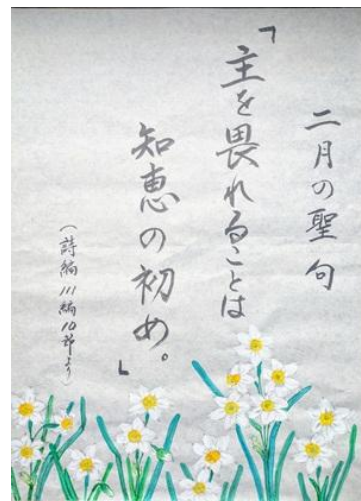 二月の聖句
「主を畏れることは
知恵の初め。」
(詩編111編10節より)